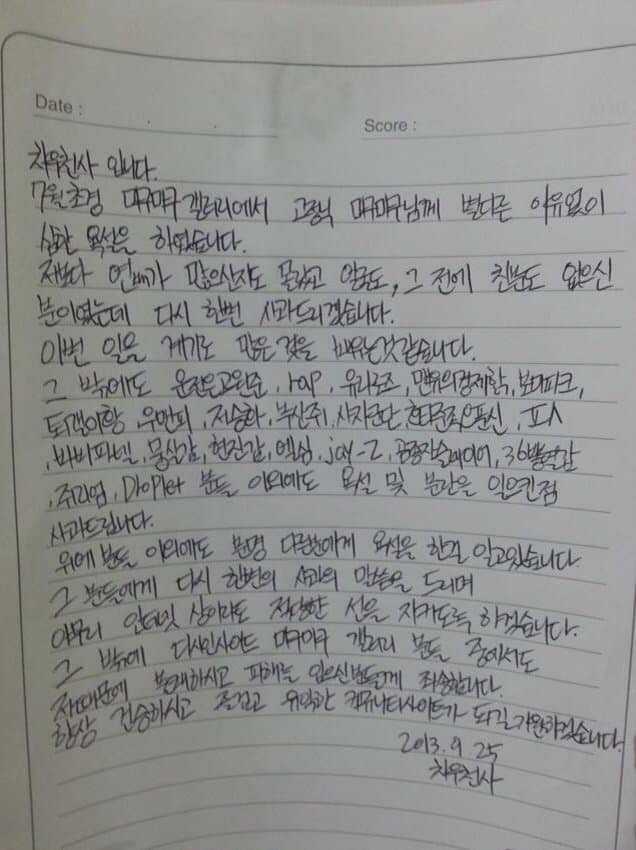 Date :
Score :
차우천사 입니다.
7월초경 마구마구갤러리에서 고정닉 마구마구님께 별다른 이유없이
심한 욕설을 하였습니다.
저보다 연배가 많으신지도 몰랐고, 그 전에 친분도 없으신
분이였는데 다시 한번 사과드리겠습니다.
이번 일을 계기로 많은 것을 배우는것같습니다.
그 밖에도 rap, 유리로즈, 맨유의경제학,
우민희, 저승화, 부산쥐,
바비파넬, 몽실감, 현진감, 엑심, jay-z, 36번
쥬리엄, Doppler 분들 이외에도 욕설 및 분란을 일으킨점
사과드립니다.
위에 분들 이외에도 분명 다른분에게 욕설을 한걸 알고있습니다.
그 분들에게 다시 한번의 사과의 말씀을 드리며
아무리 인터넷 상이라도 적당한 선을 지키도록 하겠습니다.
그 밖에 디시인사이드 마구마구 갤러리 분들 중에서도
저때문에 불쾌하시고 피해를 입으신분들께 죄송합니다.
항상 건승하시고 즐겁고 유익한 커뮤니티사이트가 되길 기원하겠습니다.
2013. 9. 25
차우천사